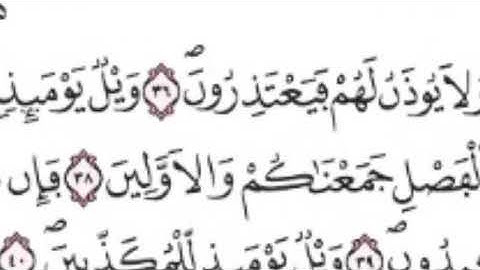 وَلَا يُؤْذَنُ لَهُمْ فَيَعْتَذِرُونَ ﴿٣٦﴾ وَيْلٌ يَوْمَئِذٍ
الْفَصْلِ جَمَعْنَاكُمْ وَالْأَوَّلِينَ ﴿٣٨﴾ فَإِن
﴿٣٩﴾ وَيْلٌ يَوْمَئِذٍ لِّلْمُكَذِّبِينَ ﴿٤٠﴾